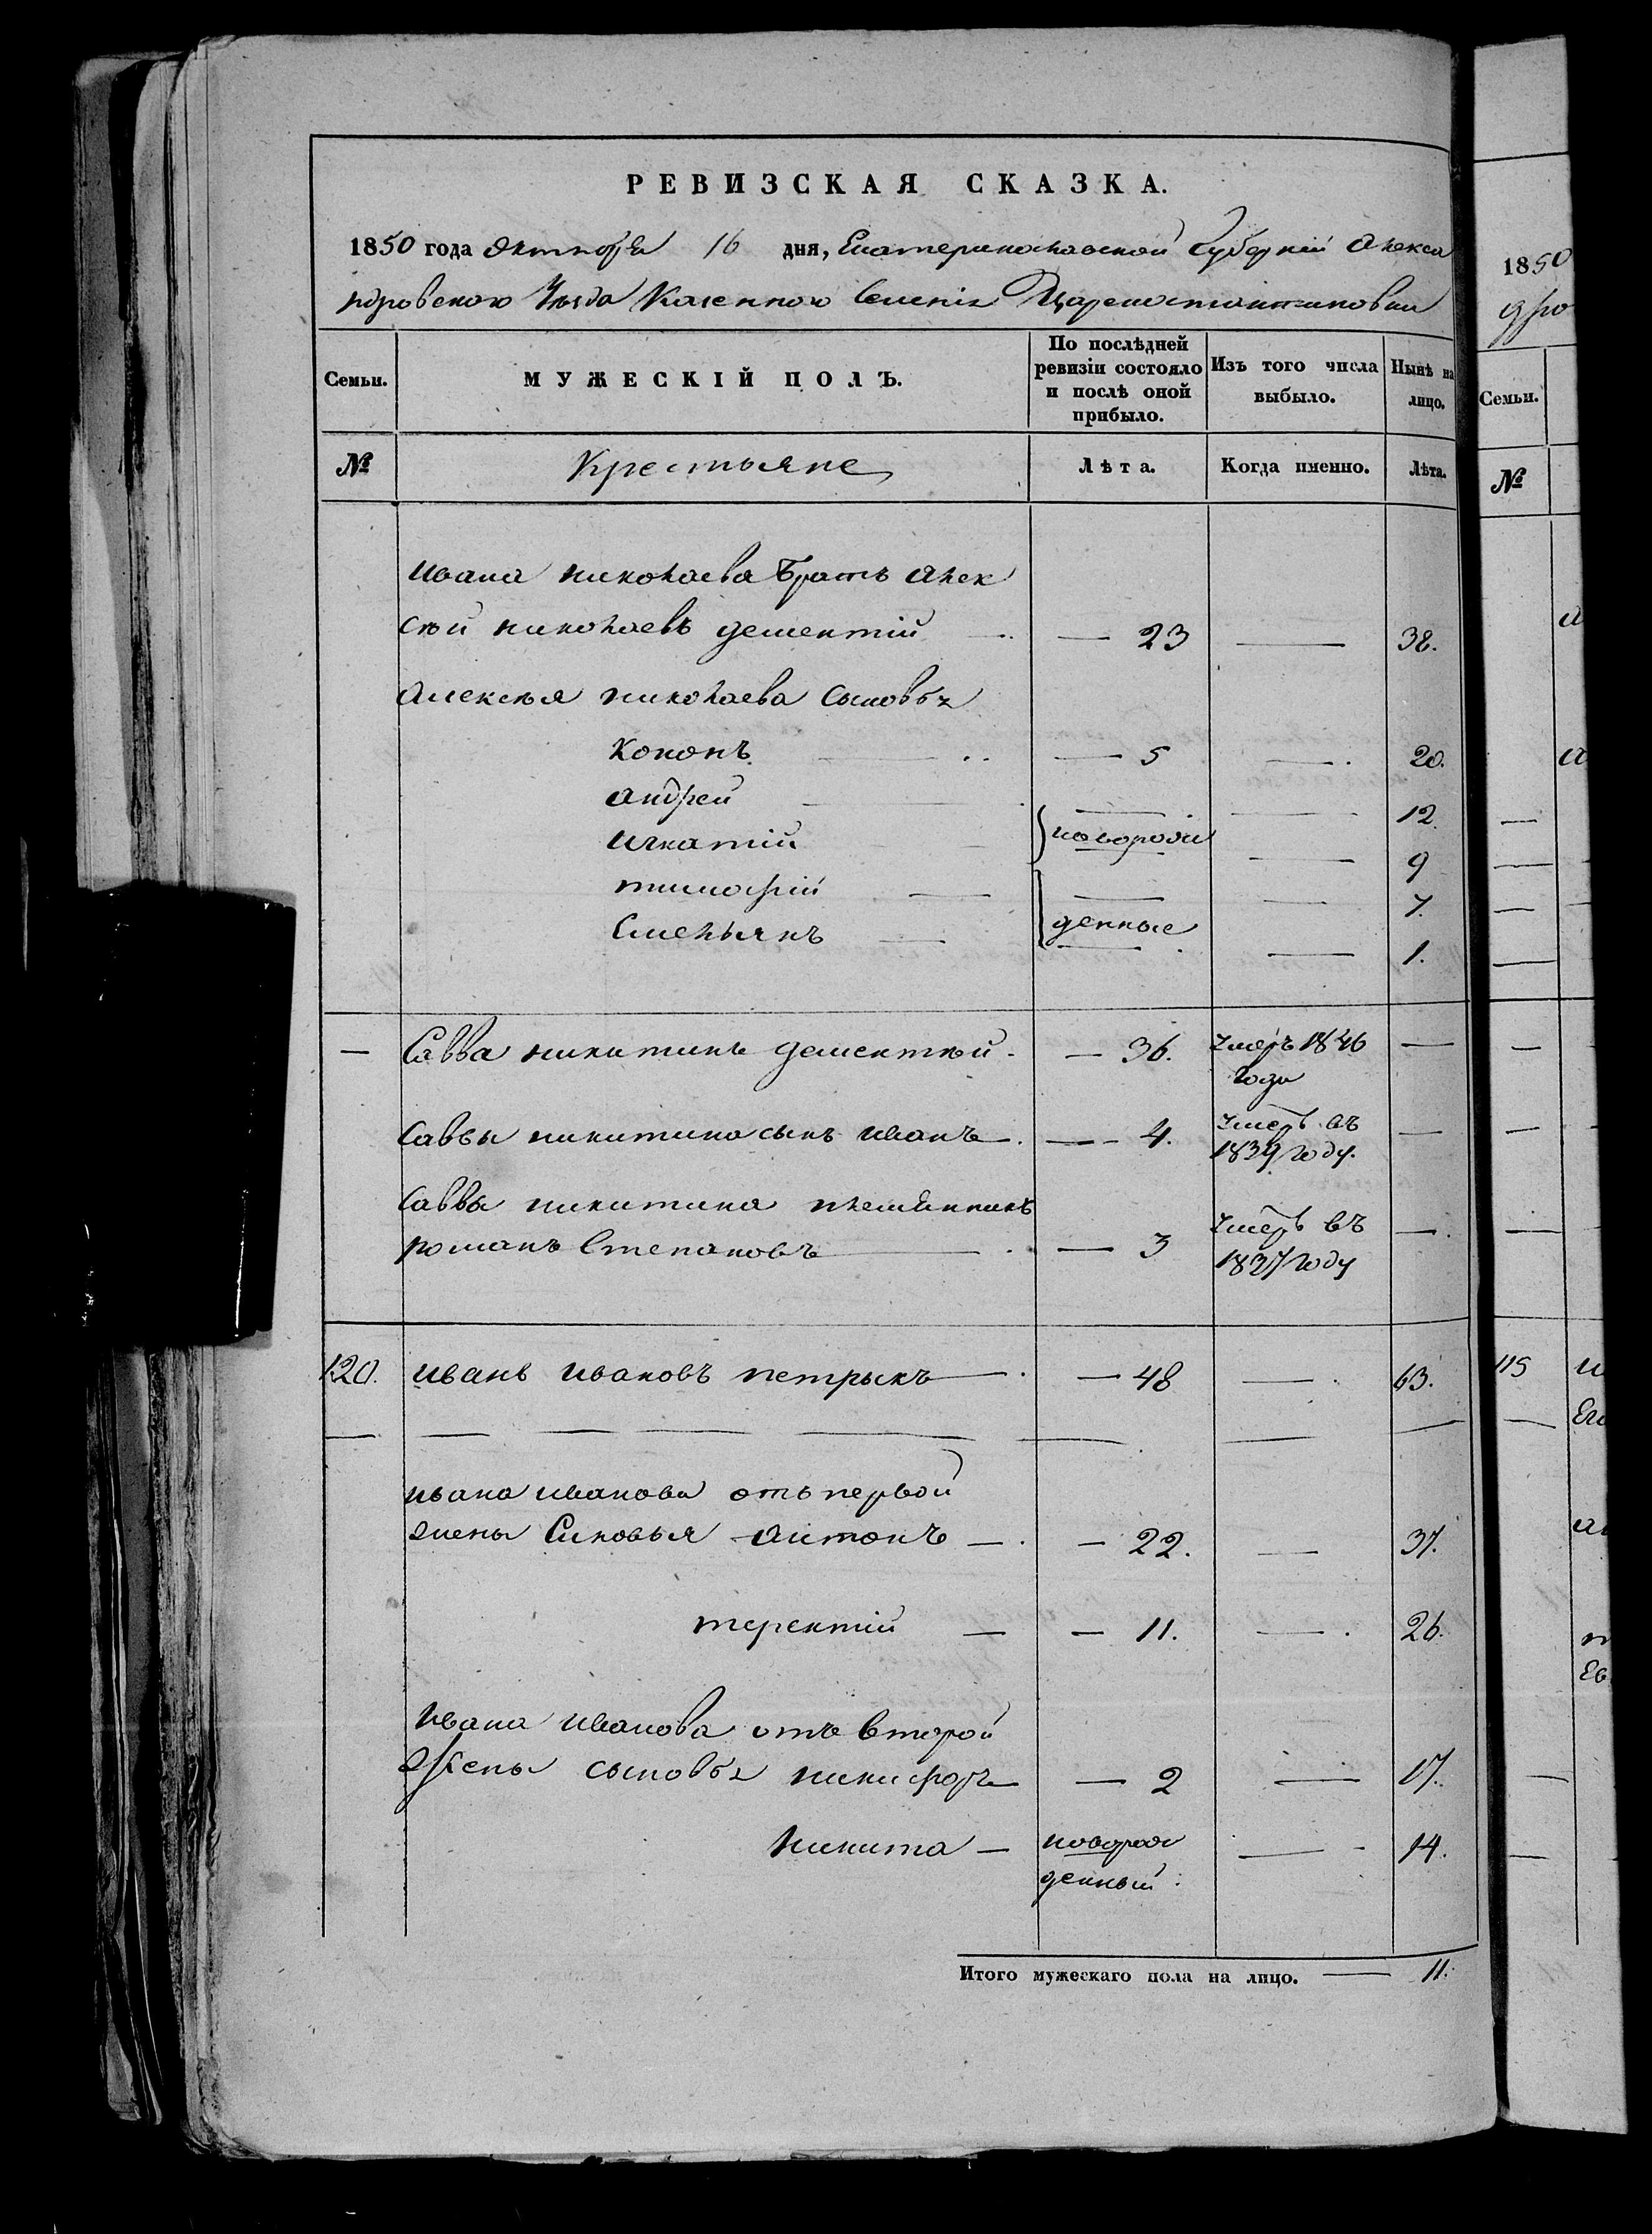 РЕВИЗСКАЯ СКАЗКА.
1850 года октября 16 дня, Екатеринославской Губерніи Алекса
ндровского Уезда Казенного Селенія Царе
Семьи. МУЖЕСКІЙ ПОЛЪ. По послѣдней ревизіи состояло и послѣ оной прибыло. Изъ того числа выбыло. Нынѣ на лицо.
№ Крестьяне Лѣта. Когда именно. Лѣта.
Ивана николаева братъ алек
сѣй николаевъ дементій — 23 — 38.
Алексѣя николаева сыновья
Кононъ — 5 — 20.
андрей — 12.
игнатій новорож — 9
тимофѣй — 7.
Емельянъ денные — 1.
— Савва никитинъ дементѣй — 36. Умеръ 1846 —
года
Саввы никитина сынъ иванъ — 4. Умеръ въ —
1839 году.
Саввы никитина племянникъ
романъ Степановъ — 3 Умеръ въ —
1837 году
120. иванъ ивановъ петрыкъ — 48 — 63.
ивана иванова отъ первой
жены Синовья антонъ — 22. — 37.
терентій — 11. — 26.
ивана иванова отъ второй
жены сыновья никифоръ — 2 — 17.
никита — новорож — 14.
денный
Итого мужескаго пола на лицо. — 11.
1850
Семьи.
№
115